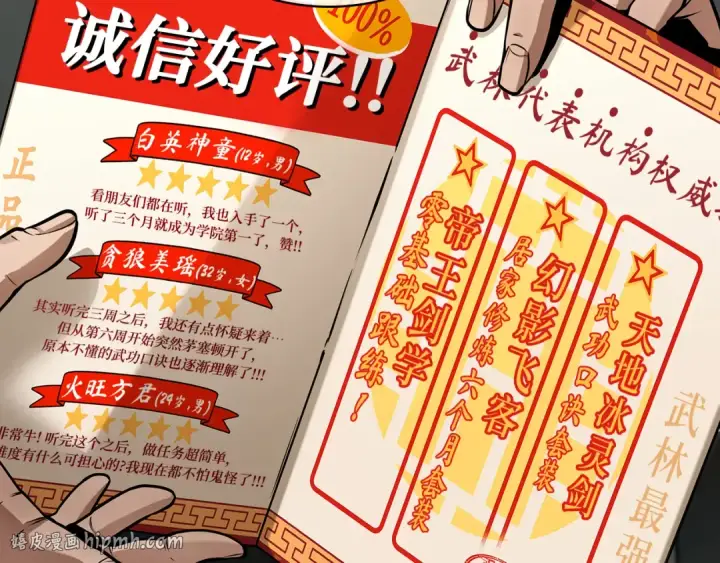 100%
诚信好评!!
正品
白英神童(12岁,男)
看朋友们都在听，我也入手了一个，
听了三个月就成为学院第一了，赞!!
贪狼美瑶(32岁,女)
其实听完三周之后，我还有点怀疑来着…
但从第六周开始突然茅塞顿开了，
原本不懂的武功口诀也逐渐理解了!!!
火旺方君(29岁,男)
非常牛! 听完这个之后，做任务超简单，
难度有什么可担心的?我现在都不怕鬼怪了!!!
武林代表机构权威
天地冰灵剑
武功口诀套装
幻影飞客
居家修炼六个月套装
帝王剑学
零基础跟练!
武林最强
嬉皮漫画hipmh.com